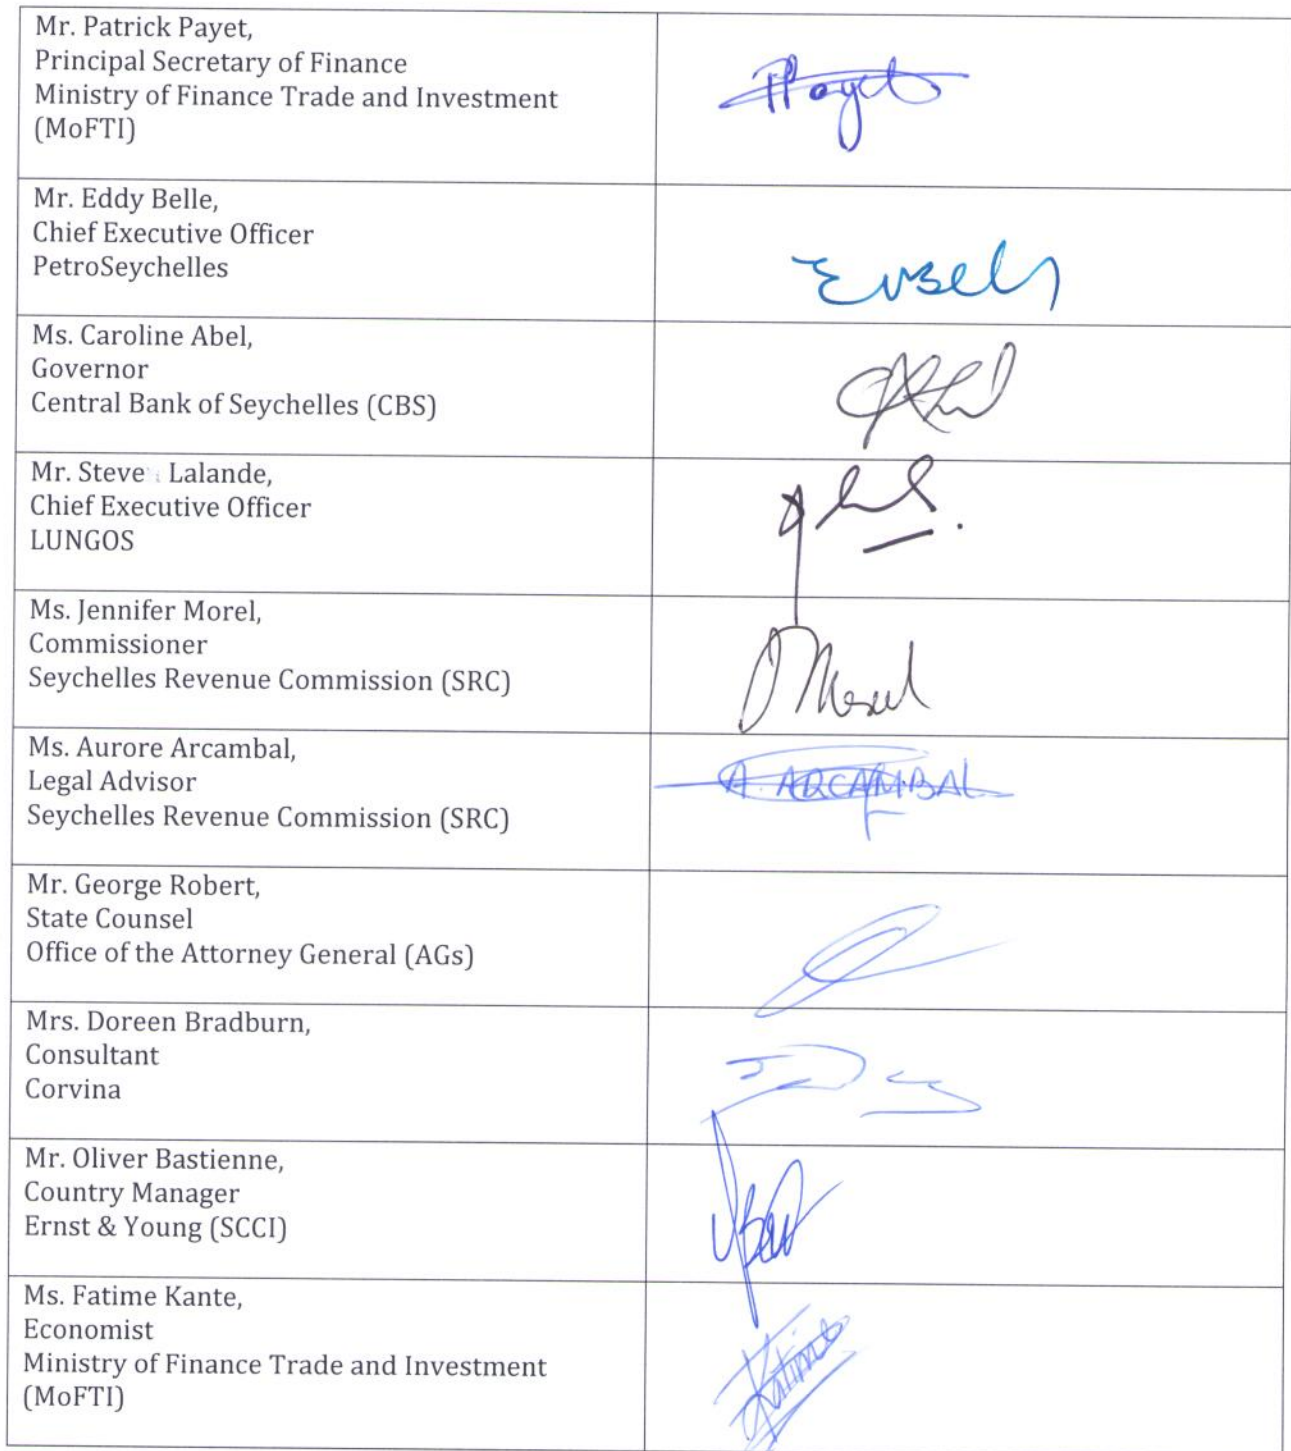 Mr. Patrick Payet,
Principal Secretary of Finance
Ministry of Finance Trade and Investment
(MoFTI)
Mr. Eddy Belle,
Chief Executive Officer
PetroSeychelles
Ms. Caroline Abel,
Governor
Central Bank of Seychelles (CBS)
Mr. Steve Lalande,
Chief Executive Officer
LUNGOS
Ms. Jennifer Morel,
Commissioner
Seychelles Revenue Commission (SRC)
Ms. Aurore Arcambal,
Legal Advisor
Seychelles Revenue Commission (SRC)
A. ARCAMBAL
Mr. George Robert,
State Counsel
Office of the Attorney General (AGs)
Mrs. Doreen Bradburn,
Consultant
Corvina
Mr. Oliver Bastienne,
Country Manager
Ernst & Young (SCCI)
Ms. Fatime Kante,
Economist
Ministry of Finance Trade and Investment
(MoFTI)